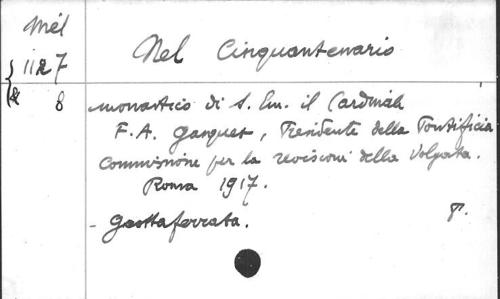 Mél
1127
& 8
Nel Cinquantenario
monastico di S. Em. il Cardinale
F. A. Gasquet, Presidente della Pontificia
Commissione per la revisioni della Volgata.
Roma 1917.
- Grottaferrata.
P.